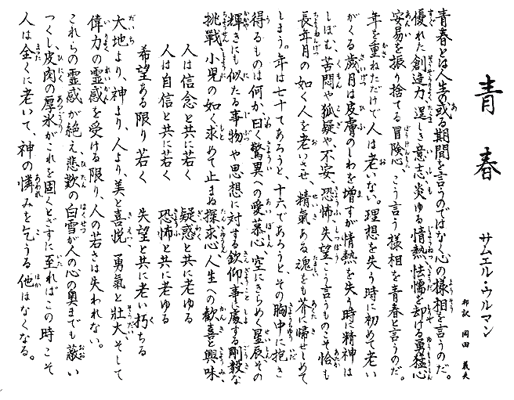 青春
サムエル・ウルマン
邦訳 岡田 義夫
青春とは人生の或る期間を言うのではなく心の様相を言うのだ。
優れた創造力、逞しき意志、炎ゆる情熱、怯懦を却ける勇猛心、
安易を振り捨てる冒険心、こう言う様相を青春と言うのだ。
年を重ねただけで人は老いない。理想を失う時に初めて老い
がくる。歳月は皮膚のしわを増すが情熱を失う時に精神は
しぼむ。苦悶や狐疑や不安、恐怖、失望、こう言うものこそ恰も
長年月の如く人を老いさせ、精氣ある魂をも芥に帰せしめて
しまう。年は七十であろうと、十六であろうと、その胸中に抱き
得るものは何か。曰く驚異への愛慕心、空にきらめく星辰、その
輝きにも似たる事物や思想に対する欽仰、事に處する剛毅な
挑戦、小児の如く求めて止まぬ探求心、人生への歓喜と興味。
人は信念と共に若く 疑惑と共に老ゆる
人は自信と共に若く 恐怖と共に老ゆる
希望ある限り若く 失望と共に老い朽ちる
大地より、神より、人より、美と喜悦、勇氣と壮大そして
偉力の霊感を受ける限り、人の若さは失われない。
これらの霊感が絶え、悲歎の白雪が人の心の奥までも蔽い
つくし、皮肉の厚氷がこれを固くとざすに至ればこの時こそ
人は全くに老いて、神の憐みを乞うる他はなくなる。